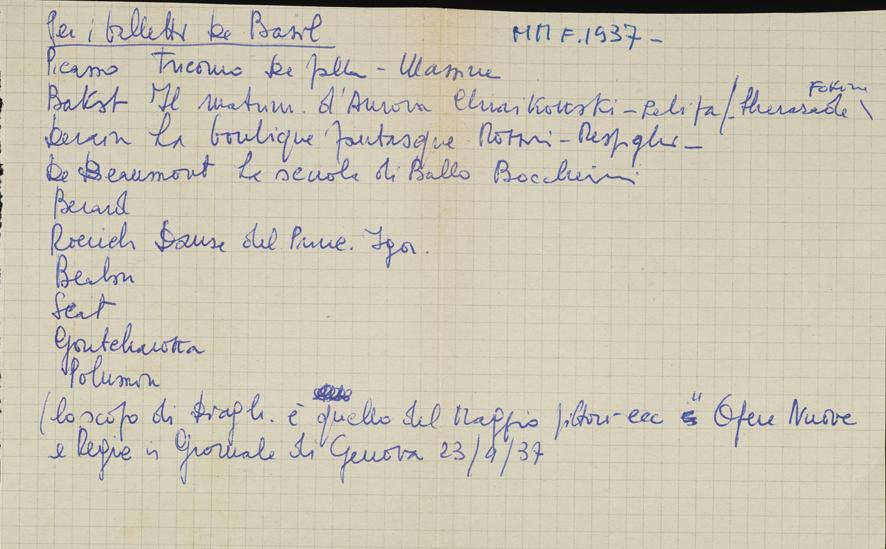 Per i balletti De Basil
MM F. 1937 -
Picasso Tricorno De Falla - Massine
Fokin
Bakst Il matrim. d'Aurora Chiaikowski - Petipa / Sherazade \
Derain La boutique fantasque Rossini - Respighi -
De Beaumont La scuola di Ballo Boccherini
Berard
Roerich Danse del Princ. Igor.
Beaton
Sert
Gontcharova
Polunin
(lo scopo di Diagh. è quello del Maggio pittori - ecc " Opere Nuove
e Regie in Giornale di Genova 23/4/37